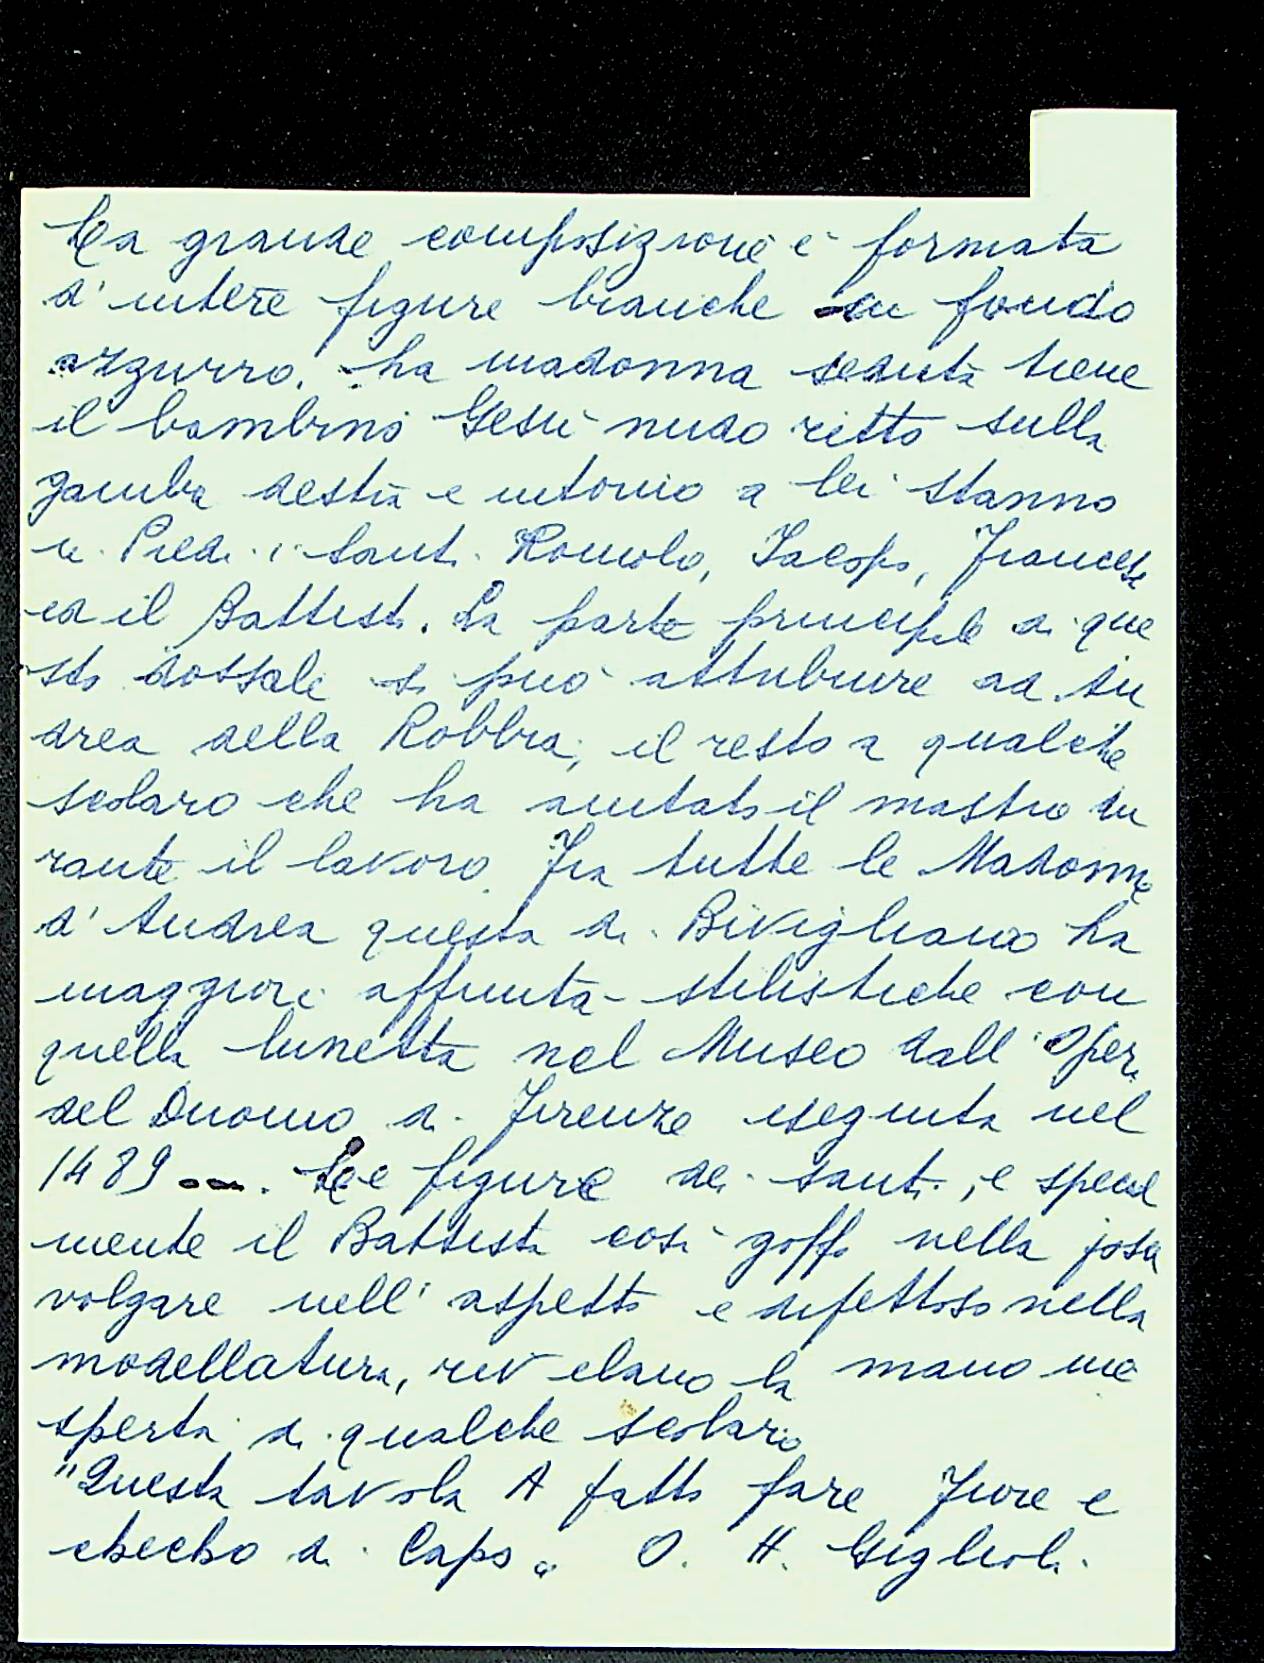 La grande composizione è formata
d'intere figure bianche su fondo
azzurro. La madonna seduta tiene
il bambino Gesù nudo ritto sulla
gamba destra e intorno a lei stanno
in Piedi i Santi Romolo, Jacopo, Francesco
ed il Battista. La parte principale di que
sto dossale si può attribuire ad An
drea della Robbia, il resto a qualche
scolaro che ha aiutato il mastro du
rante il lavoro. Fra tutte le Madonne
d'Andrea questa di Bivigliano ha
maggiori affinità stilistiche con
quella lunetta nel Museo dall'Opera
del Duomo di Firenze eseguita nel
1489 .... Le figure dei santi, e special
mente il Battista così goffo nella posa
volgare nell'aspetto e difettoso nella
modellatura, rivelano la mano ine
sperta di qualche scolaro
"Questa tavola A fatto fare Fiore e
checho di Capo" O. H. Giglioli.